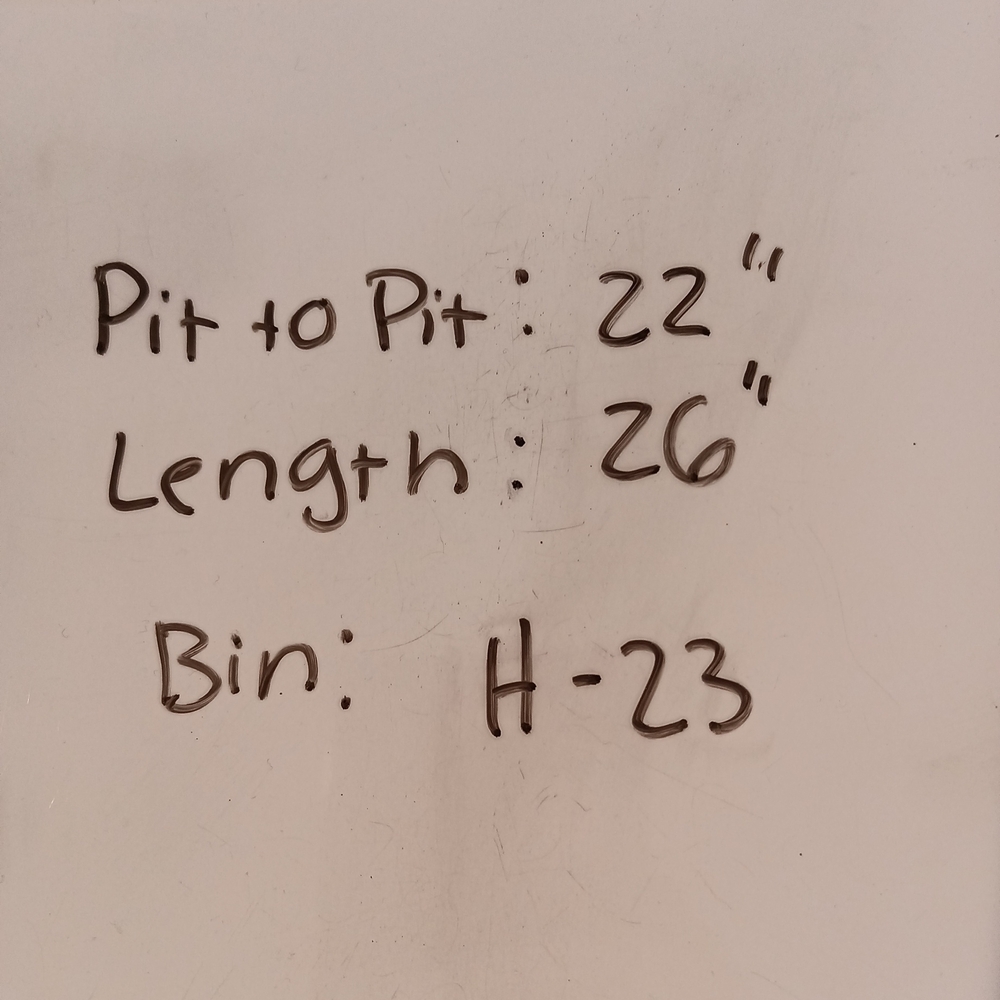 Pit to Pit: 22"
Length: 26"
Bin: H-23